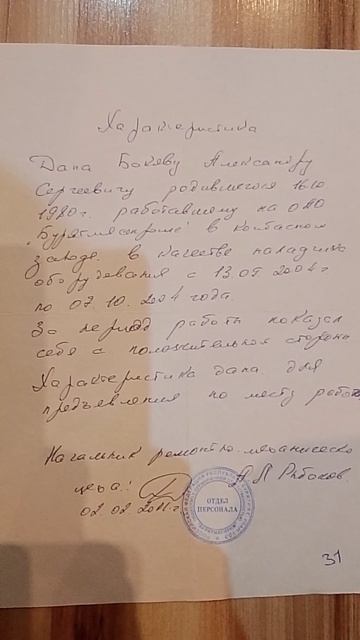 Характеристика
Дана Бокову Александру
Сергеевичу родившегося
1980г. работавшему на ОАО
"Бурятмясопром" в колбасном
заводе в качестве наладчика
оборудования с 13 05 2004г
по 07. 10. 2004 года.
За период работы показал
себя с положительной стороны
Характеристика дана для
предъявления по месту работы
Начальник ремонтно-механическо
цеха: А П Рыбаков
02.02
ОТДЕЛ
ПЕРСОНАЛА
31